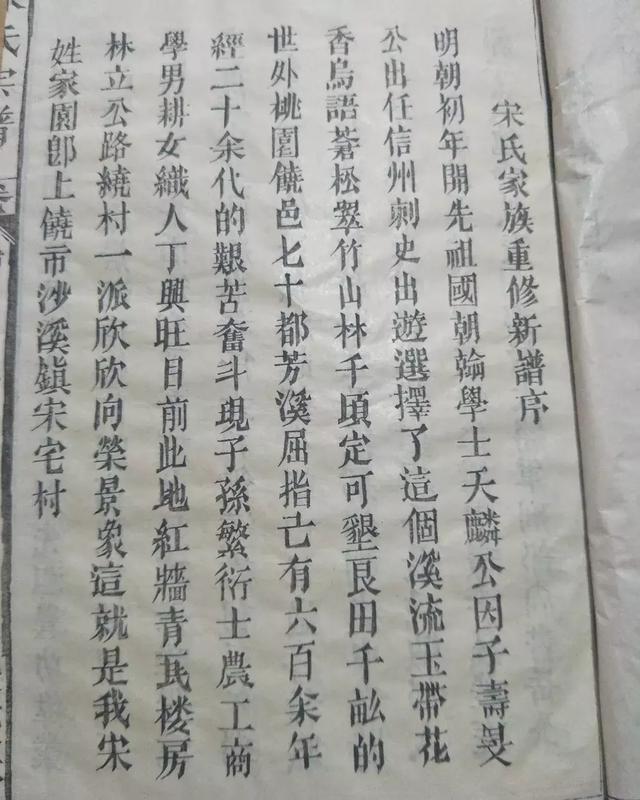 宋氏家族重修新譜序
明朝初年開先祖國朝翰學士天麟公因子壽旻
公出任信州刺史出遊選擇了這個溪流玉帶花
香鳥語蒼松翠竹山林千頃定可墾良田千畝的
世外桃園饒邑七十都芳溪屈指已有六百余年
經二十余代的艱苦奮斗現子孫繁衍士農工商
學男耕女織人丁興旺目前此地紅牆青瓦楼房
林立公路繞村一派欣欣向榮景象這就是我宋
姓家園即上饒市沙溪鎮宋宅村
氏宗譜